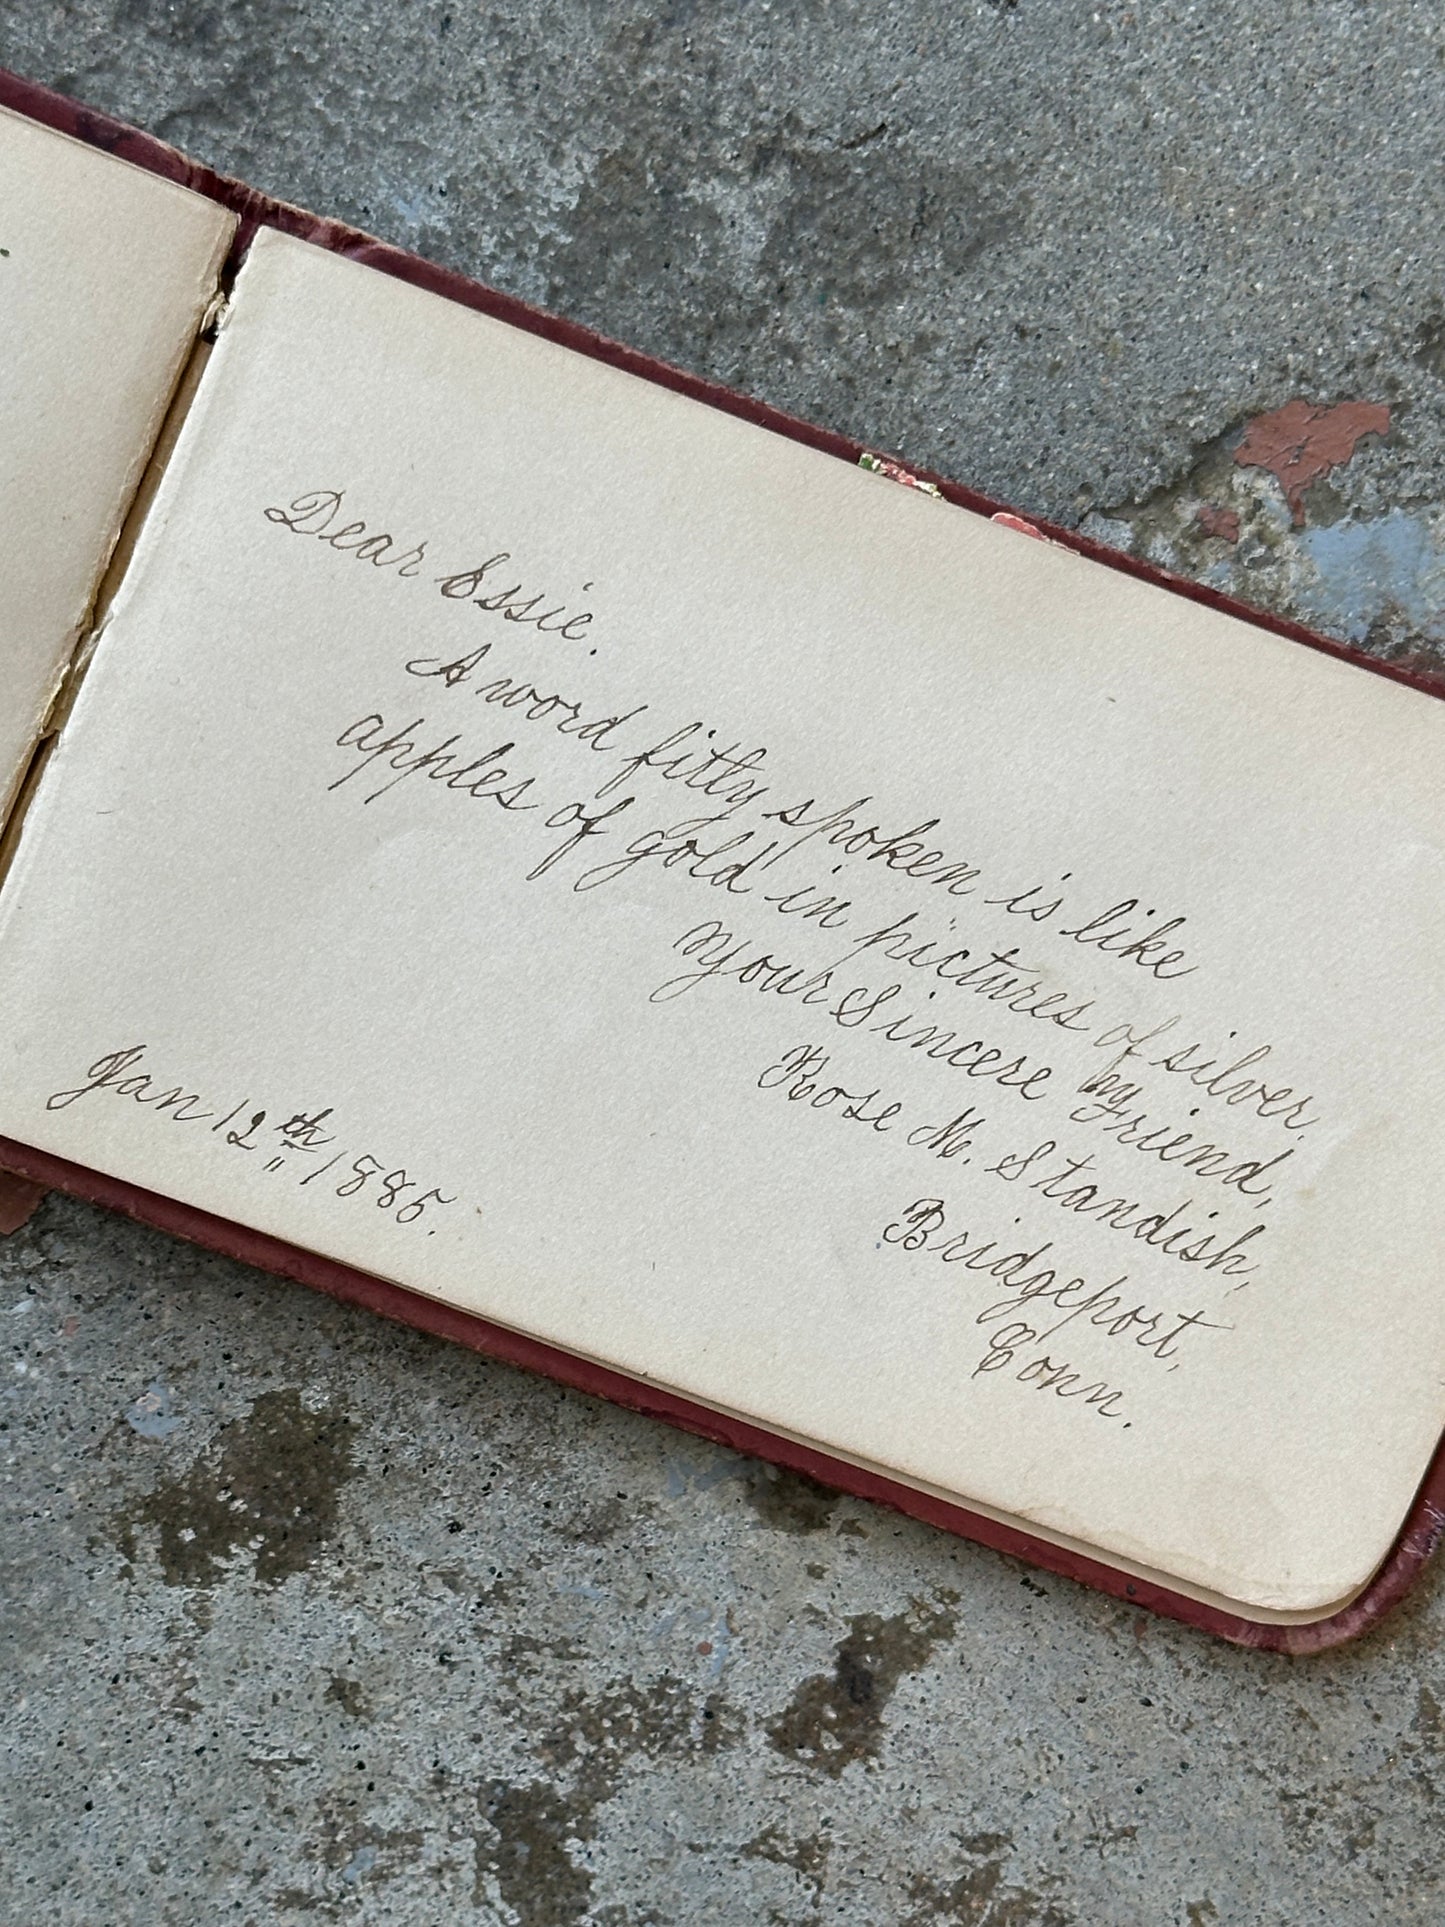 Dear Essie.
A word fitly spoken is like
apples of gold in pictures of silver.
Your Sincere Friend,
Rose M. Standish,
Bridgeport,
Conn.
Jan 12th 1885.